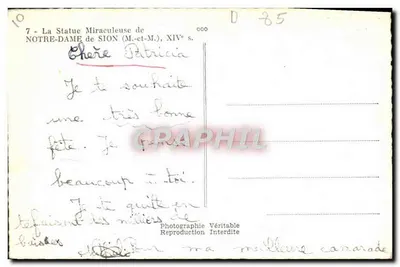 D 85
7 - La Statue Miraculeuse de
NOTRE-DAME de SION (M.-et-M.), XIVe s.
Chère Patricia
Je te souhaite
une très bonne
fête. Je pense
beaucoup à toi.
Je te quite en
te faisant des milliers de
ma meilleure camarade
CPAPHIL
Photographie Véritable
Reproduction Interdite